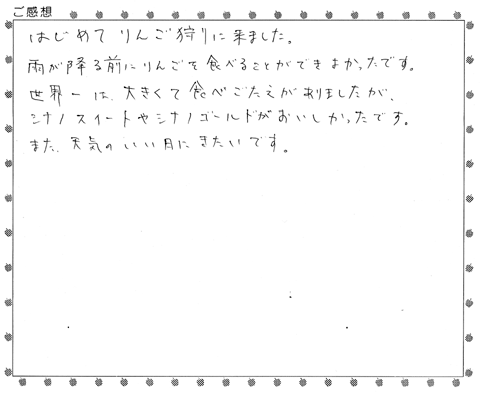 ご感想
はじめて りんご狩りに来ました。
雨が降る前にりんごを食べることができよかったです。
世界一は、大きくて食べごたえがありましたが、
シナノスイートやシナノゴールドがおいしかったです。
また、天気のいい月にきたいです。